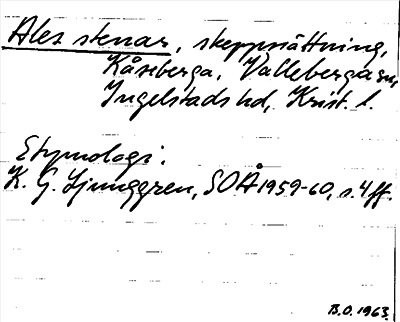 Ales stenar, skeppssättning,
Kåseberga, Valleberga sn,
Ingelstads hd, Krist. l.
Etymologi:
K. G. Ljunggren, SOÅ 1959-60, s. 4 ff.
B.O. 1963.